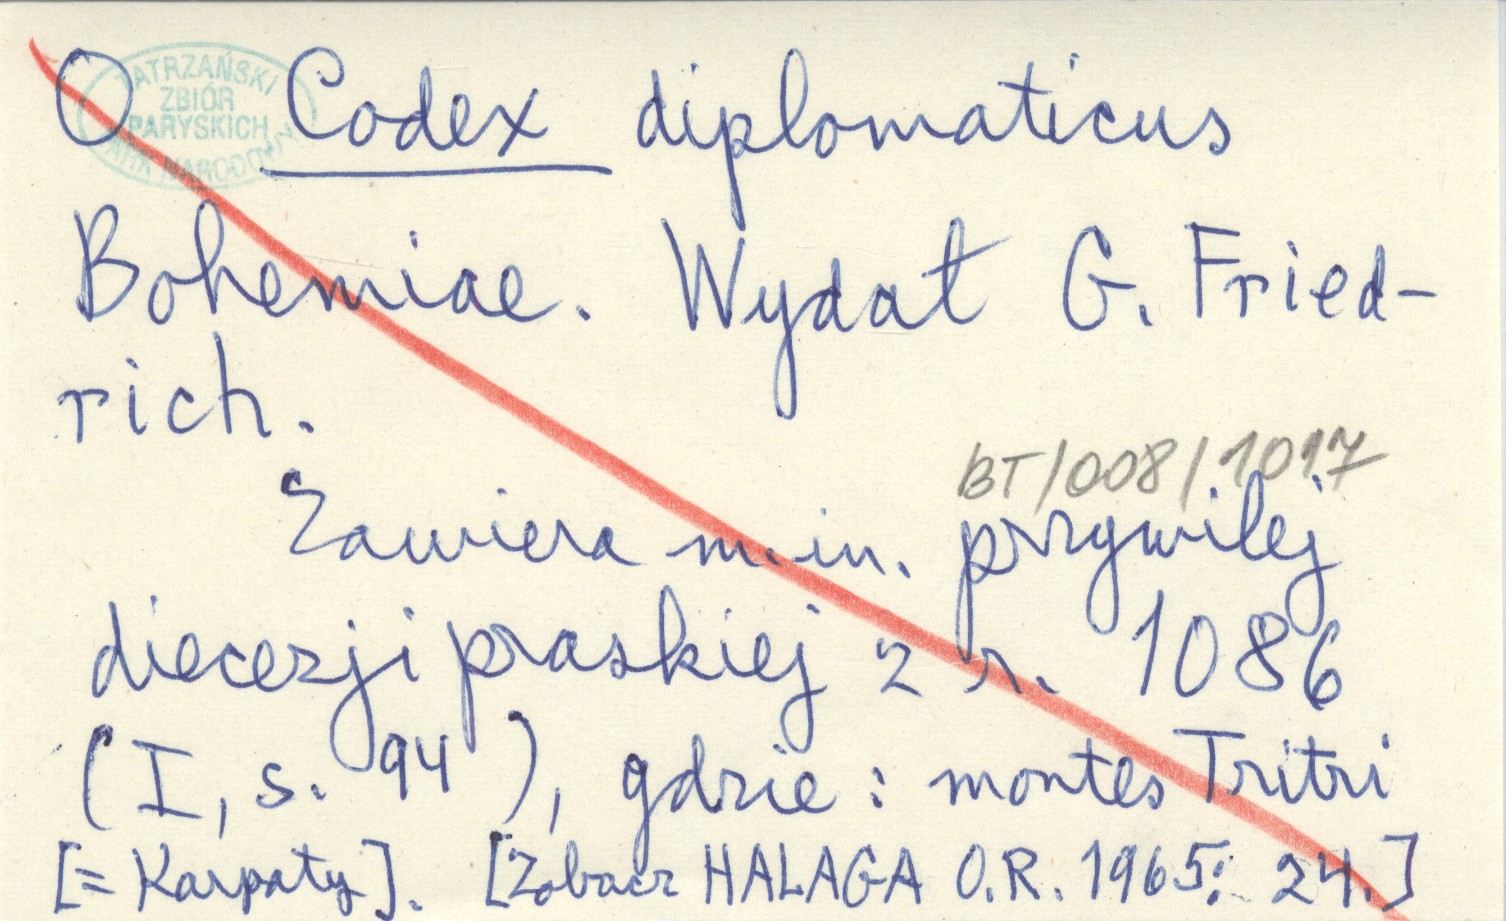 O Codex diplomaticus
TATRZAŃSKI
ZBIÓR
PARYSKICH
PARK NARODOWY
Bohemiae. Wydał G. Fried-
rich.
BT/008/1017
Zawiera m.in. przywilej
diecezji praskiej z r. 1086
(I, s. 94), gdzie: montes Tritri
[= Karpaty]. [Zobacz HALAGA O.R. 1965: 24.]